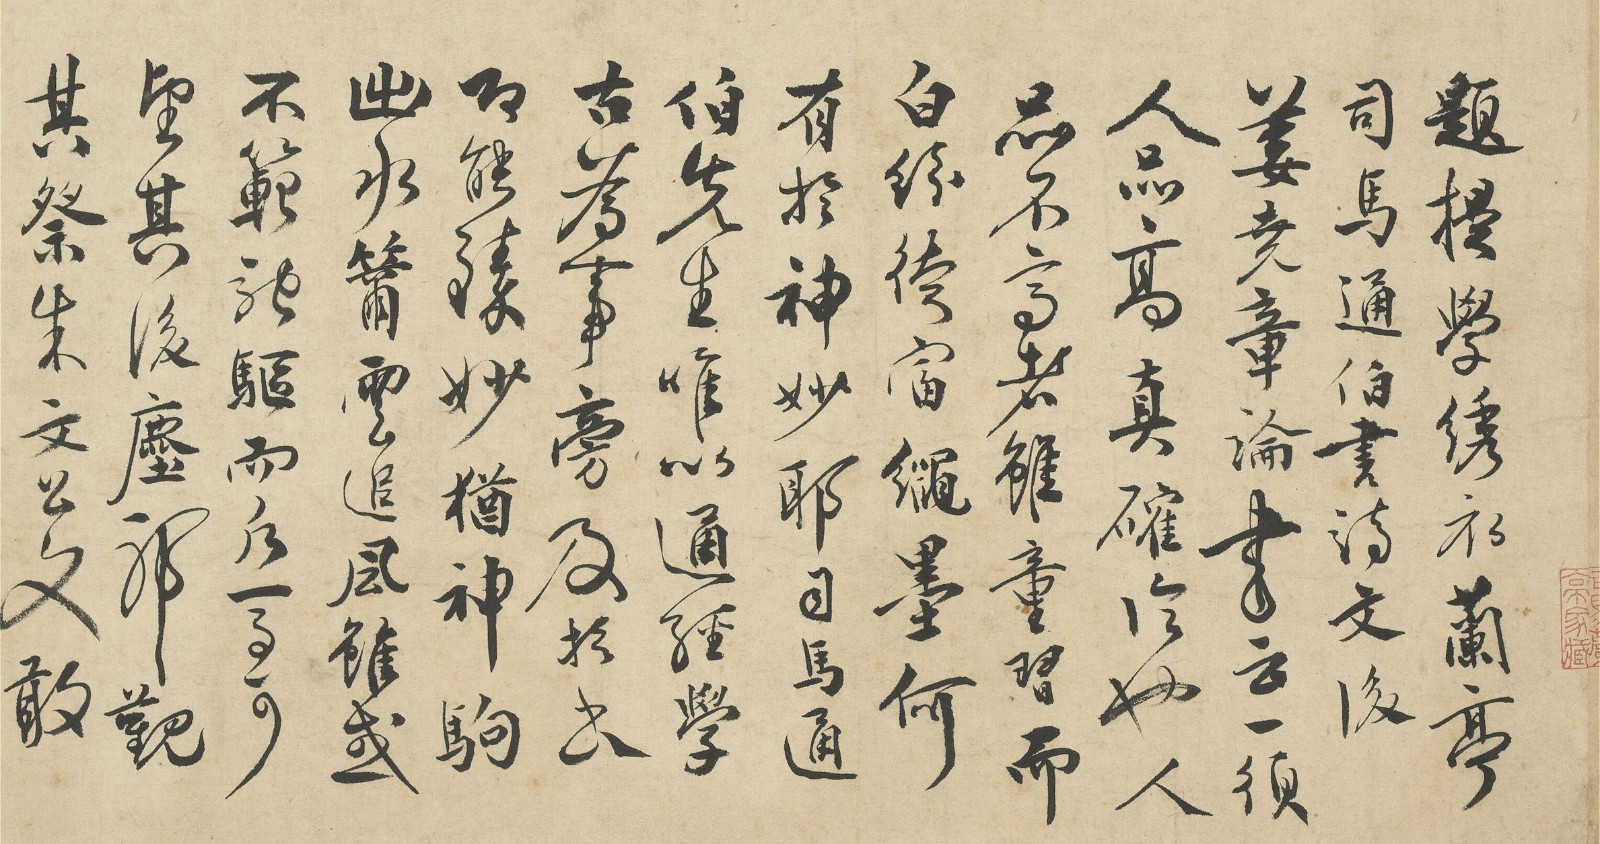 題模學綉蘭亭
司馬通伯書詩文後
姜堯章論書云一須
人品高真確論也人
品不高者雖童習而
白紛徒窘繩墨何
有於神妙耶司馬通
伯先生唯以通經學
古為事旁及於書
即能臻妙猶神駒
出水籋雲追風雖或
不範馳驅而可
望其後塵耶觀
其祭朱文公文敢